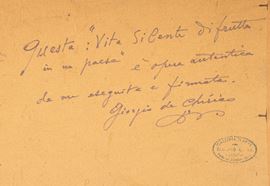 Questa "Vita Silente di frutta
in un paese" è opera autentica
da me eseguita e firmata.
Giorgio de Chirico